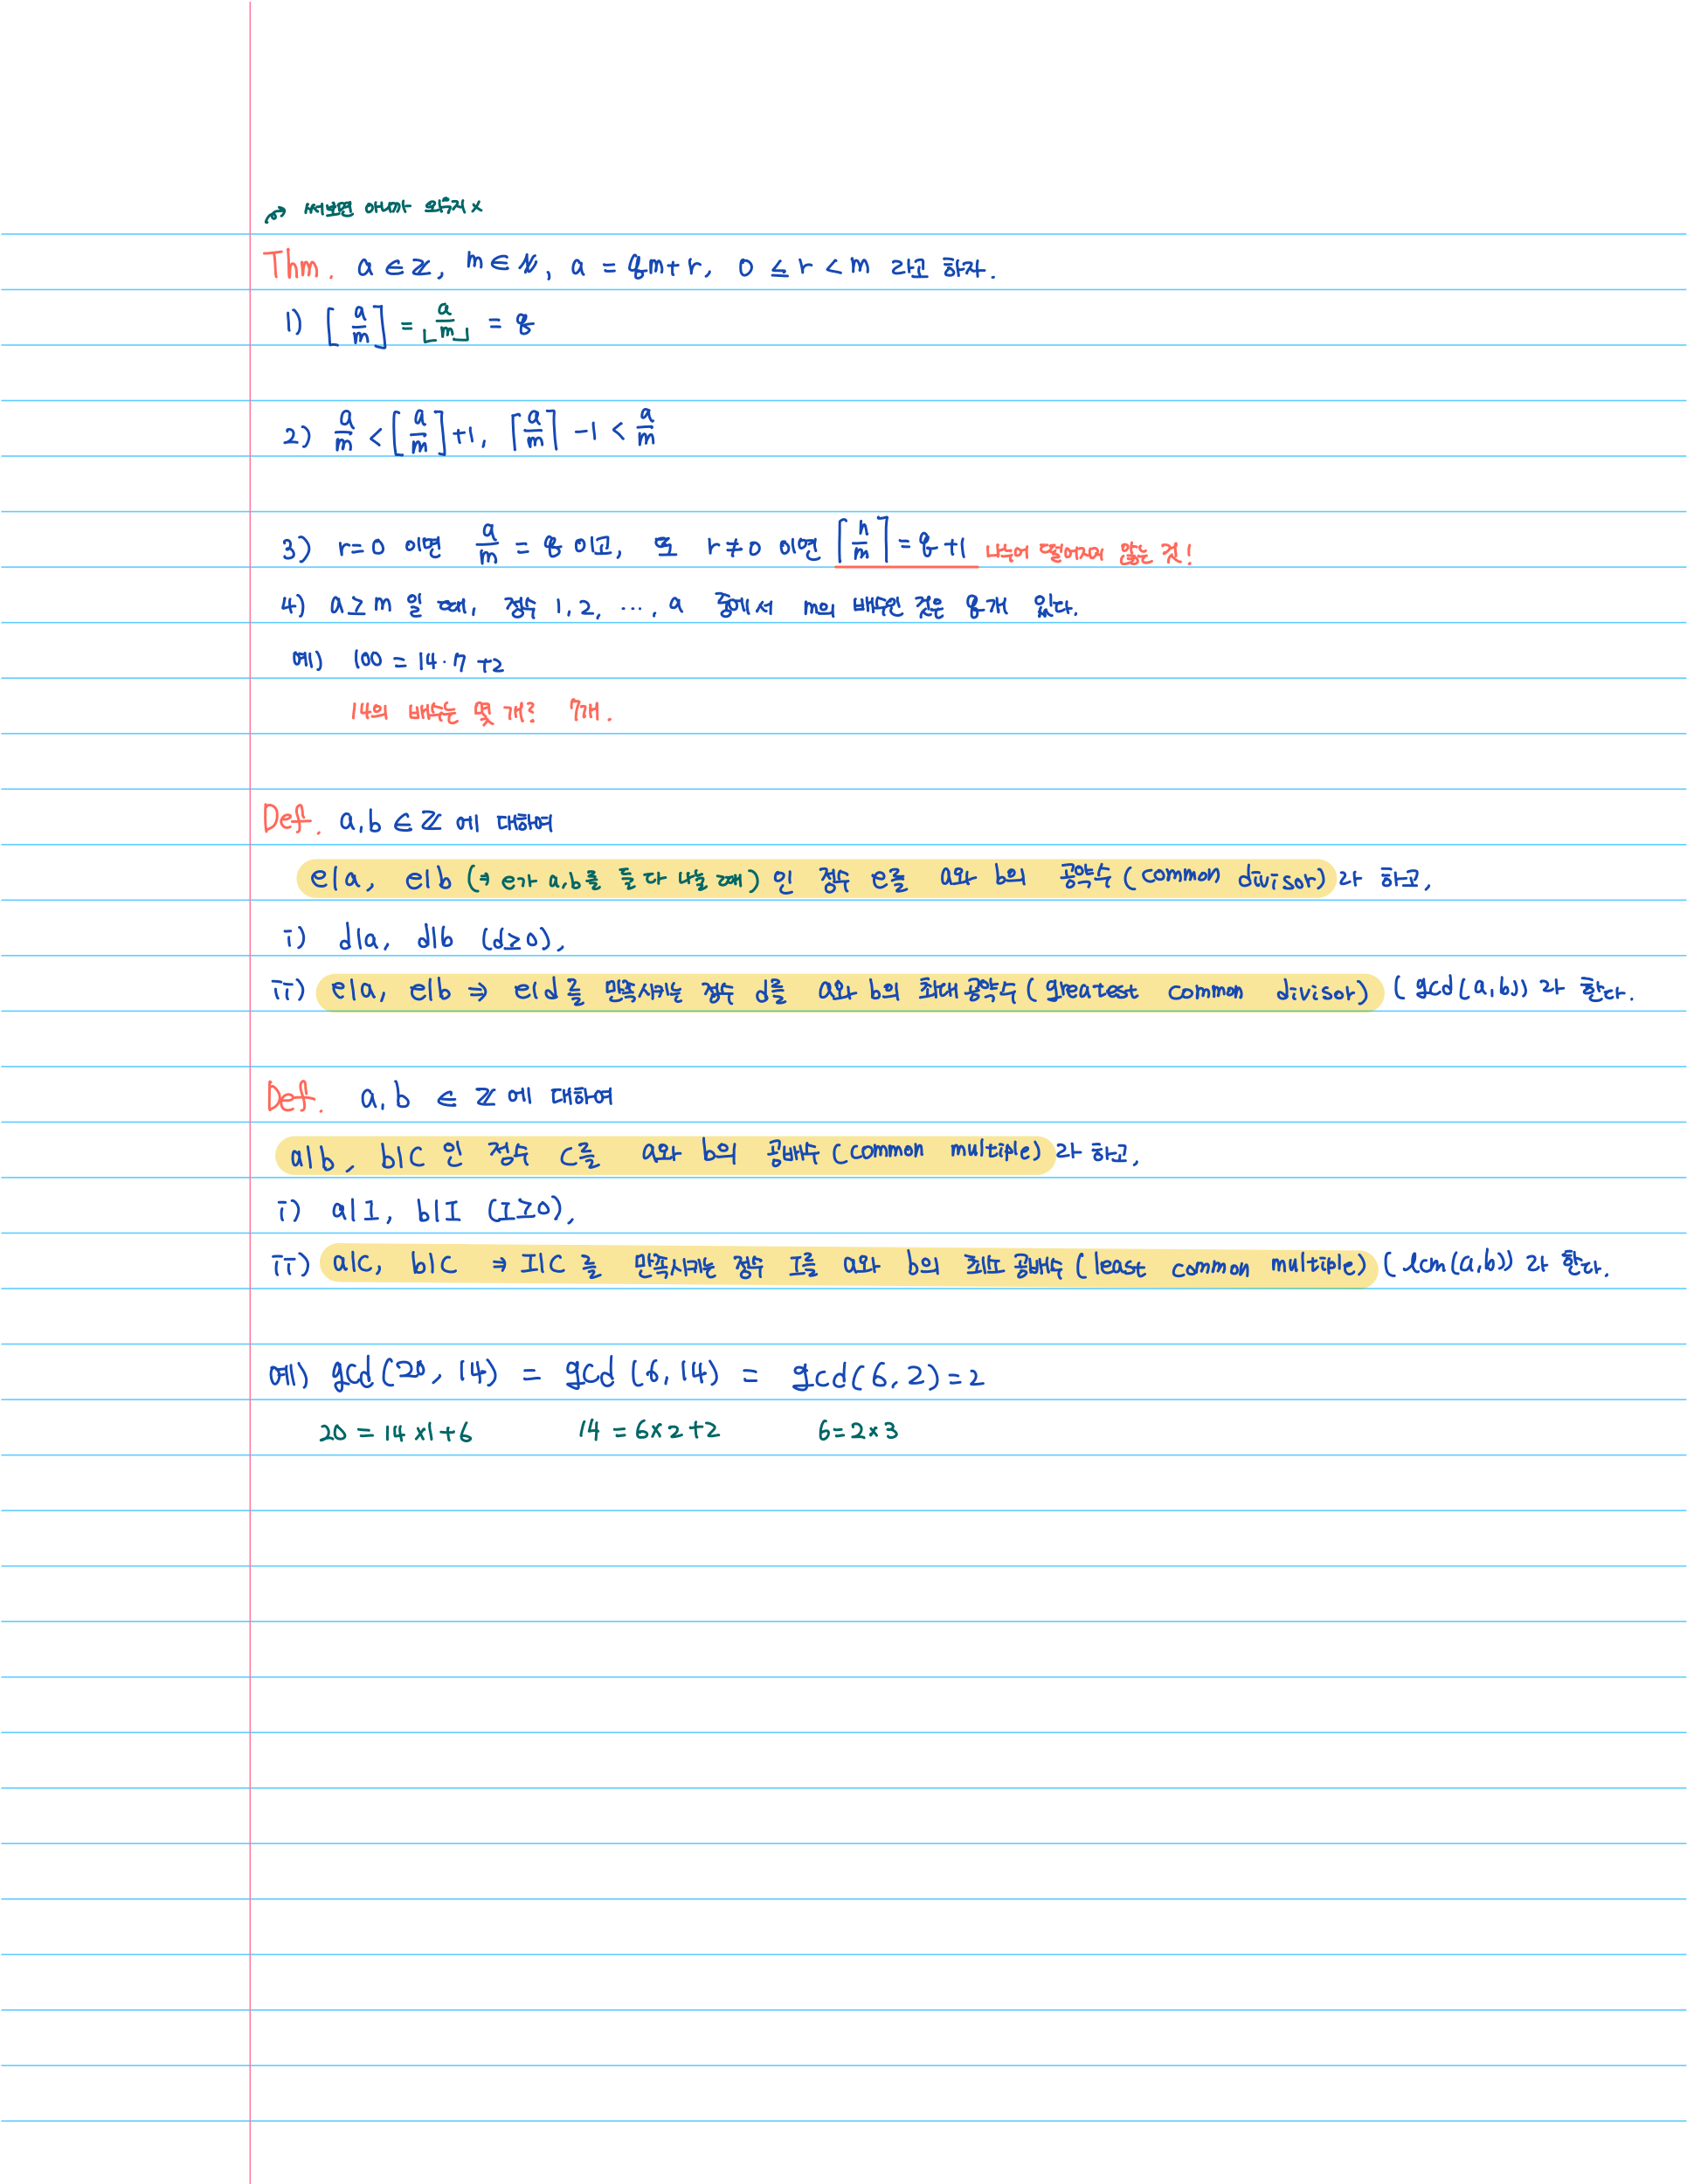 ↗ 써보면 아니까 외우지 x
Thm. a ∈ ℤ, m ∈ ℕ, a = qm+r, 0 ≤ r < m 라고 하자.
1) [a/m] = ⌊a/m⌋ = q
2) a/m < [a/m]+1, ⌈a/m⌉ -1 < a/m
3) r=0 이면 a/m = q 이고, 또 r≠0 이면 ⌈n/m⌉ = q+1 나누어 떨어지지 않는 것!
4) a≥m 일 때, 정수 1, 2, ..., a 중에서 m의 배수인 것은 q개 있다.
예) 100 = 14·7 +2
14의 배수는 몇 개? 7개.
Def. a,b ∈ ℤ 에 대하여
e|a, e|b (⇒ e가 a,b를 둘 다 나눌 때) 인 정수 e를 a와 b의 공약수 (common divisor) 라 하고,
i) d|a, d|b (d≥0),
ii) e|a, e|b ⇒ e|d 를 만족시키는 정수 d를 a와 b의 최대공약수 (greatest common divisor) (gcd(a,b)) 라 한다.
Def. a, b ∈ ℤ 에 대하여
a|b, b|c 인 정수 c를 a와 b의 공배수 (common multiple) 라 하고,
i) a|I, b|I (I≥0),
ii) a|c, b|c ⇒ I|c 를 만족시키는 정수 I를 a와 b의 최소공배수 (least common multiple) (lcm(a,b)) 라 한다.
예) gcd(20, 14) = gcd (6, 14) = gcd(6, 2) = 2
20 = 14 x1+6 14 = 6x2+2 6=2x3